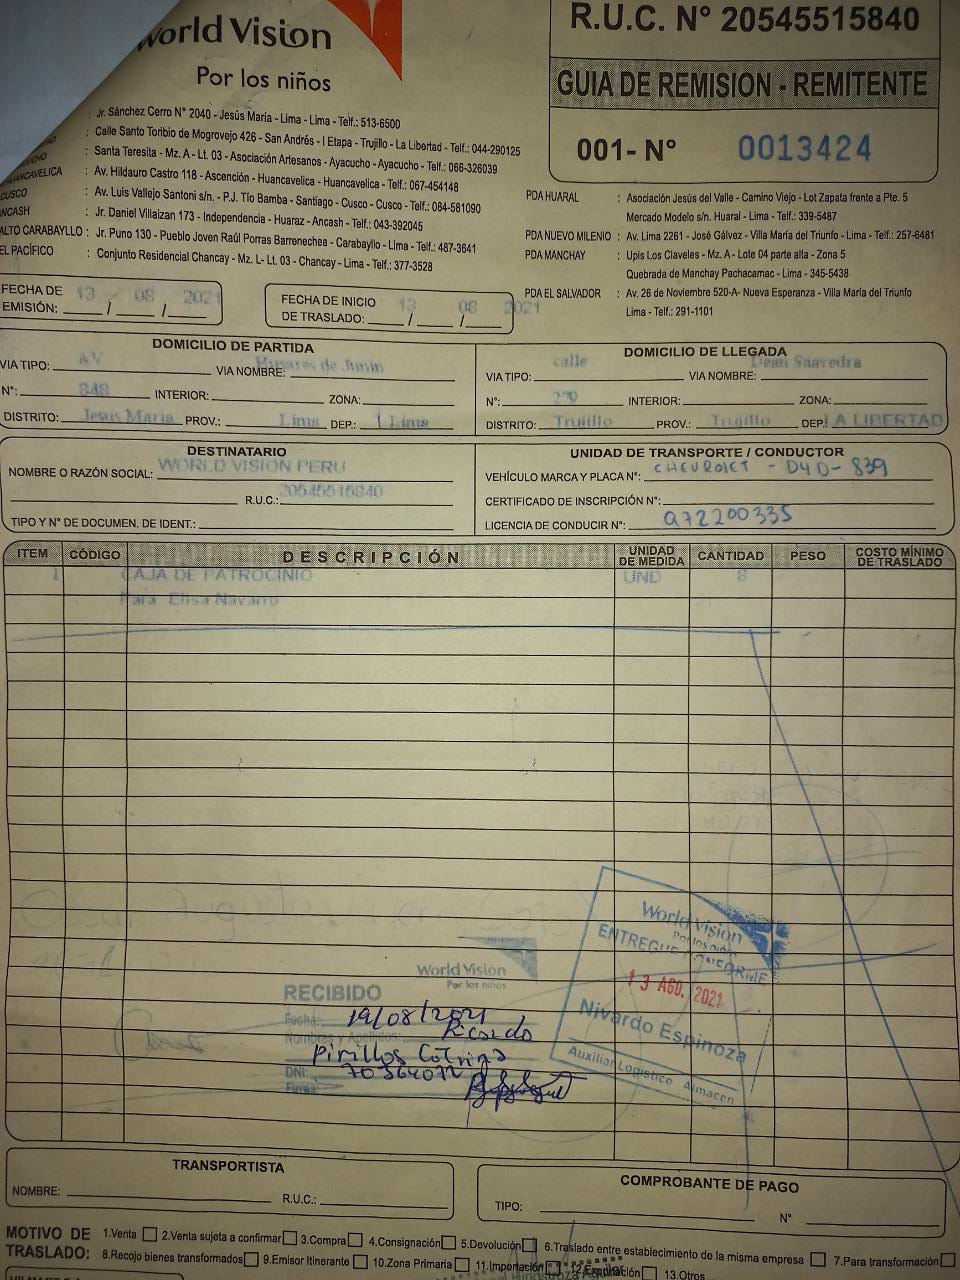 World Vision
Por los niños
R.U.C. N° 20545515840
GUIA DE REMISION - REMITENTE
001- N° 0013424
: Jr. Sánchez Cerro N° 2040 - Jesús María - Lima - Lima - Telf.: 513-6500
: Calle Santo Toribio de Mogrovejo 426 - San Andrés - I Etapa - Trujillo - La Libertad - Telf.: 044-290125
: Santa Teresita - Mz. A - Lt. 03 - Asociación Artesanos - Ayacucho - Ayacucho - Telf.: 066-326039
HUANCAVELICA : Av. Hildauro Castro 118 - Ascención - Huancavelica - Huancavelica - Telf.: 067-454148
CUSCO : Av. Luis Vallejo Santoni s/n. - P.J. Tío Bamba - Santiago - Cusco - Cusco - Telf.: 084-581090
NCASH : Jr. Daniel Villaizan 173 - Independencia - Huaraz - Ancash - Telf.: 043-392045
ALTO CARABAYLLO : Jr. Puno 130 - Pueblo Joven Raúl Porras Barrenechea - Carabayllo - Lima - Telf.: 487-3641
EL PACÍFICO : Conjunto Residencial Chancay - Mz. L- Lt. 03 - Chancay - Lima - Telf.: 377-3528
PDA HUARAL : Asociación Jesús del Valle - Camino Viejo - Lot Zapata frente a Pte. 5
Mercado Modelo s/n. Huaral - Lima - Telf.: 339-5487
PDA NUEVO MILENIO : Av. Lima 2261 - José Gálvez - Villa María del Triunfo - Lima - Telf.: 257-6481
PDA MANCHAY : Upis Los Claveles - Mz. A - Lote 04 parte alta - Zona 5
Quebrada de Manchay Pachacamac - Lima - 345-5438
PDA EL SALVADOR : Av. 26 de Noviembre 520-A- Nueva Esperanza - Villa María del Triunfo
Lima - Telf.: 291-1101
FECHA DE EMISIÓN: 13 / 08 / 2021
FECHA DE INICIO DE TRASLADO: 13 / 08 / 2021
DOMICILIO DE PARTIDA
VIA TIPO: AV VIA NOMBRE: Husares de Junin
N°: 848 INTERIOR: ZONA:
DISTRITO: Jesus Maria PROV.: Lima DEP.: Lima
DOMICILIO DE LLEGADA
VIA TIPO: calle VIA NOMBRE: Dean Saavedra
N°: 279 INTERIOR: ZONA:
DISTRITO: Trujillo PROV.: Trujillo DEP.: LA LIBERTAD
DESTINATARIO
NOMBRE O RAZÓN SOCIAL: WORLD VISION PERU
R.U.C.: 20545515840
TIPO Y N° DE DOCUMEN. DE IDENT.:
UNIDAD DE TRANSPORTE / CONDUCTOR
VEHÍCULO MARCA Y PLACA N°: CHEVROLET - D4D-839
CERTIFICADO DE INSCRIPCIÓN N°:
LICENCIA DE CONDUCIR N°: Q72200335
ITEM CÓDIGO DESCRIPCIÓN UNIDAD DE MEDIDA CANTIDAD PESO COSTO MÍNIMO DE TRASLADO
1 CAJA DE PATROCINIO UND 8
Para Elisa Navarro
World Vision
Por los niños
ENTREGUE CONFORME
13 AGO. 2021
Nivardo Espinoza
Auxiliar Logistico Almacen
World Vision
Por los niños
RECIBIDO
Fecha: 19/08/2021
Nombres y Apellidos: Ricardo
Pirillos Cotrina
DNI: 70364072
Firma:
TRANSPORTISTA
NOMBRE: R.U.C.:
COMPROBANTE DE PAGO
TIPO: N°
MOTIVO DE TRASLADO: 1.Venta 2.Venta sujeta a confirmar 3.Compra 4.Consignación 5.Devolución 6.Traslado entre establecimiento de la misma empresa 7.Para transformación
8.Recojo bienes transformados 9.Emisor Itinerante 10.Zona Primaria 11.Importación 12.Exportación 13.Otros